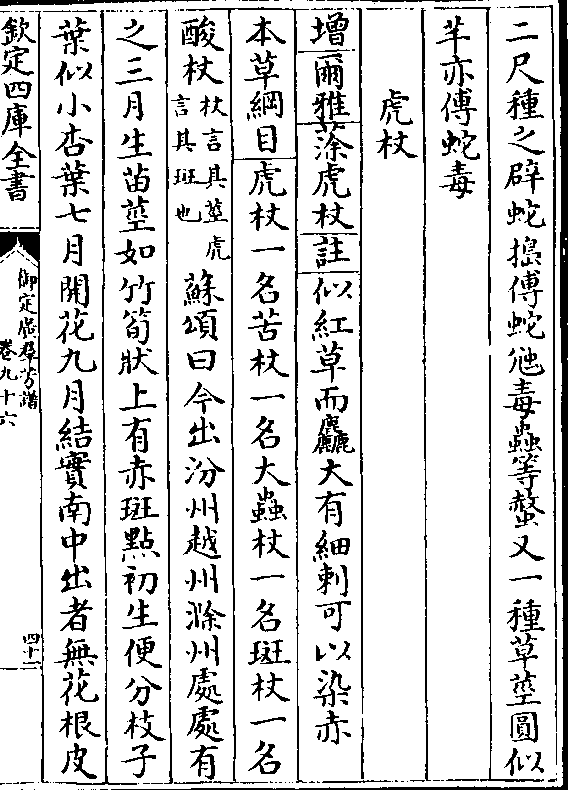 二尺種之辟蛇搗傅蛇虺毒蟲等螫又一種草莖圓似
芊亦傅蛇毒
虎杖
增爾雅蒤虎杖註似紅草而麤大有細刺可以染赤
本草綱目虎杖一名苦杖一名大蟲杖一名斑杖一名
酸杖杖言其莖虎言其斑也蘇頌曰今出汾州越州滁州處處有
之三月生苗莖如竹筍狀上有赤斑點初生便分枝子
葉似小杏葉七月開花九月結實南中出者無花根皮
欽定四庫全書
御定廣群芳譜
卷九十六
四十二